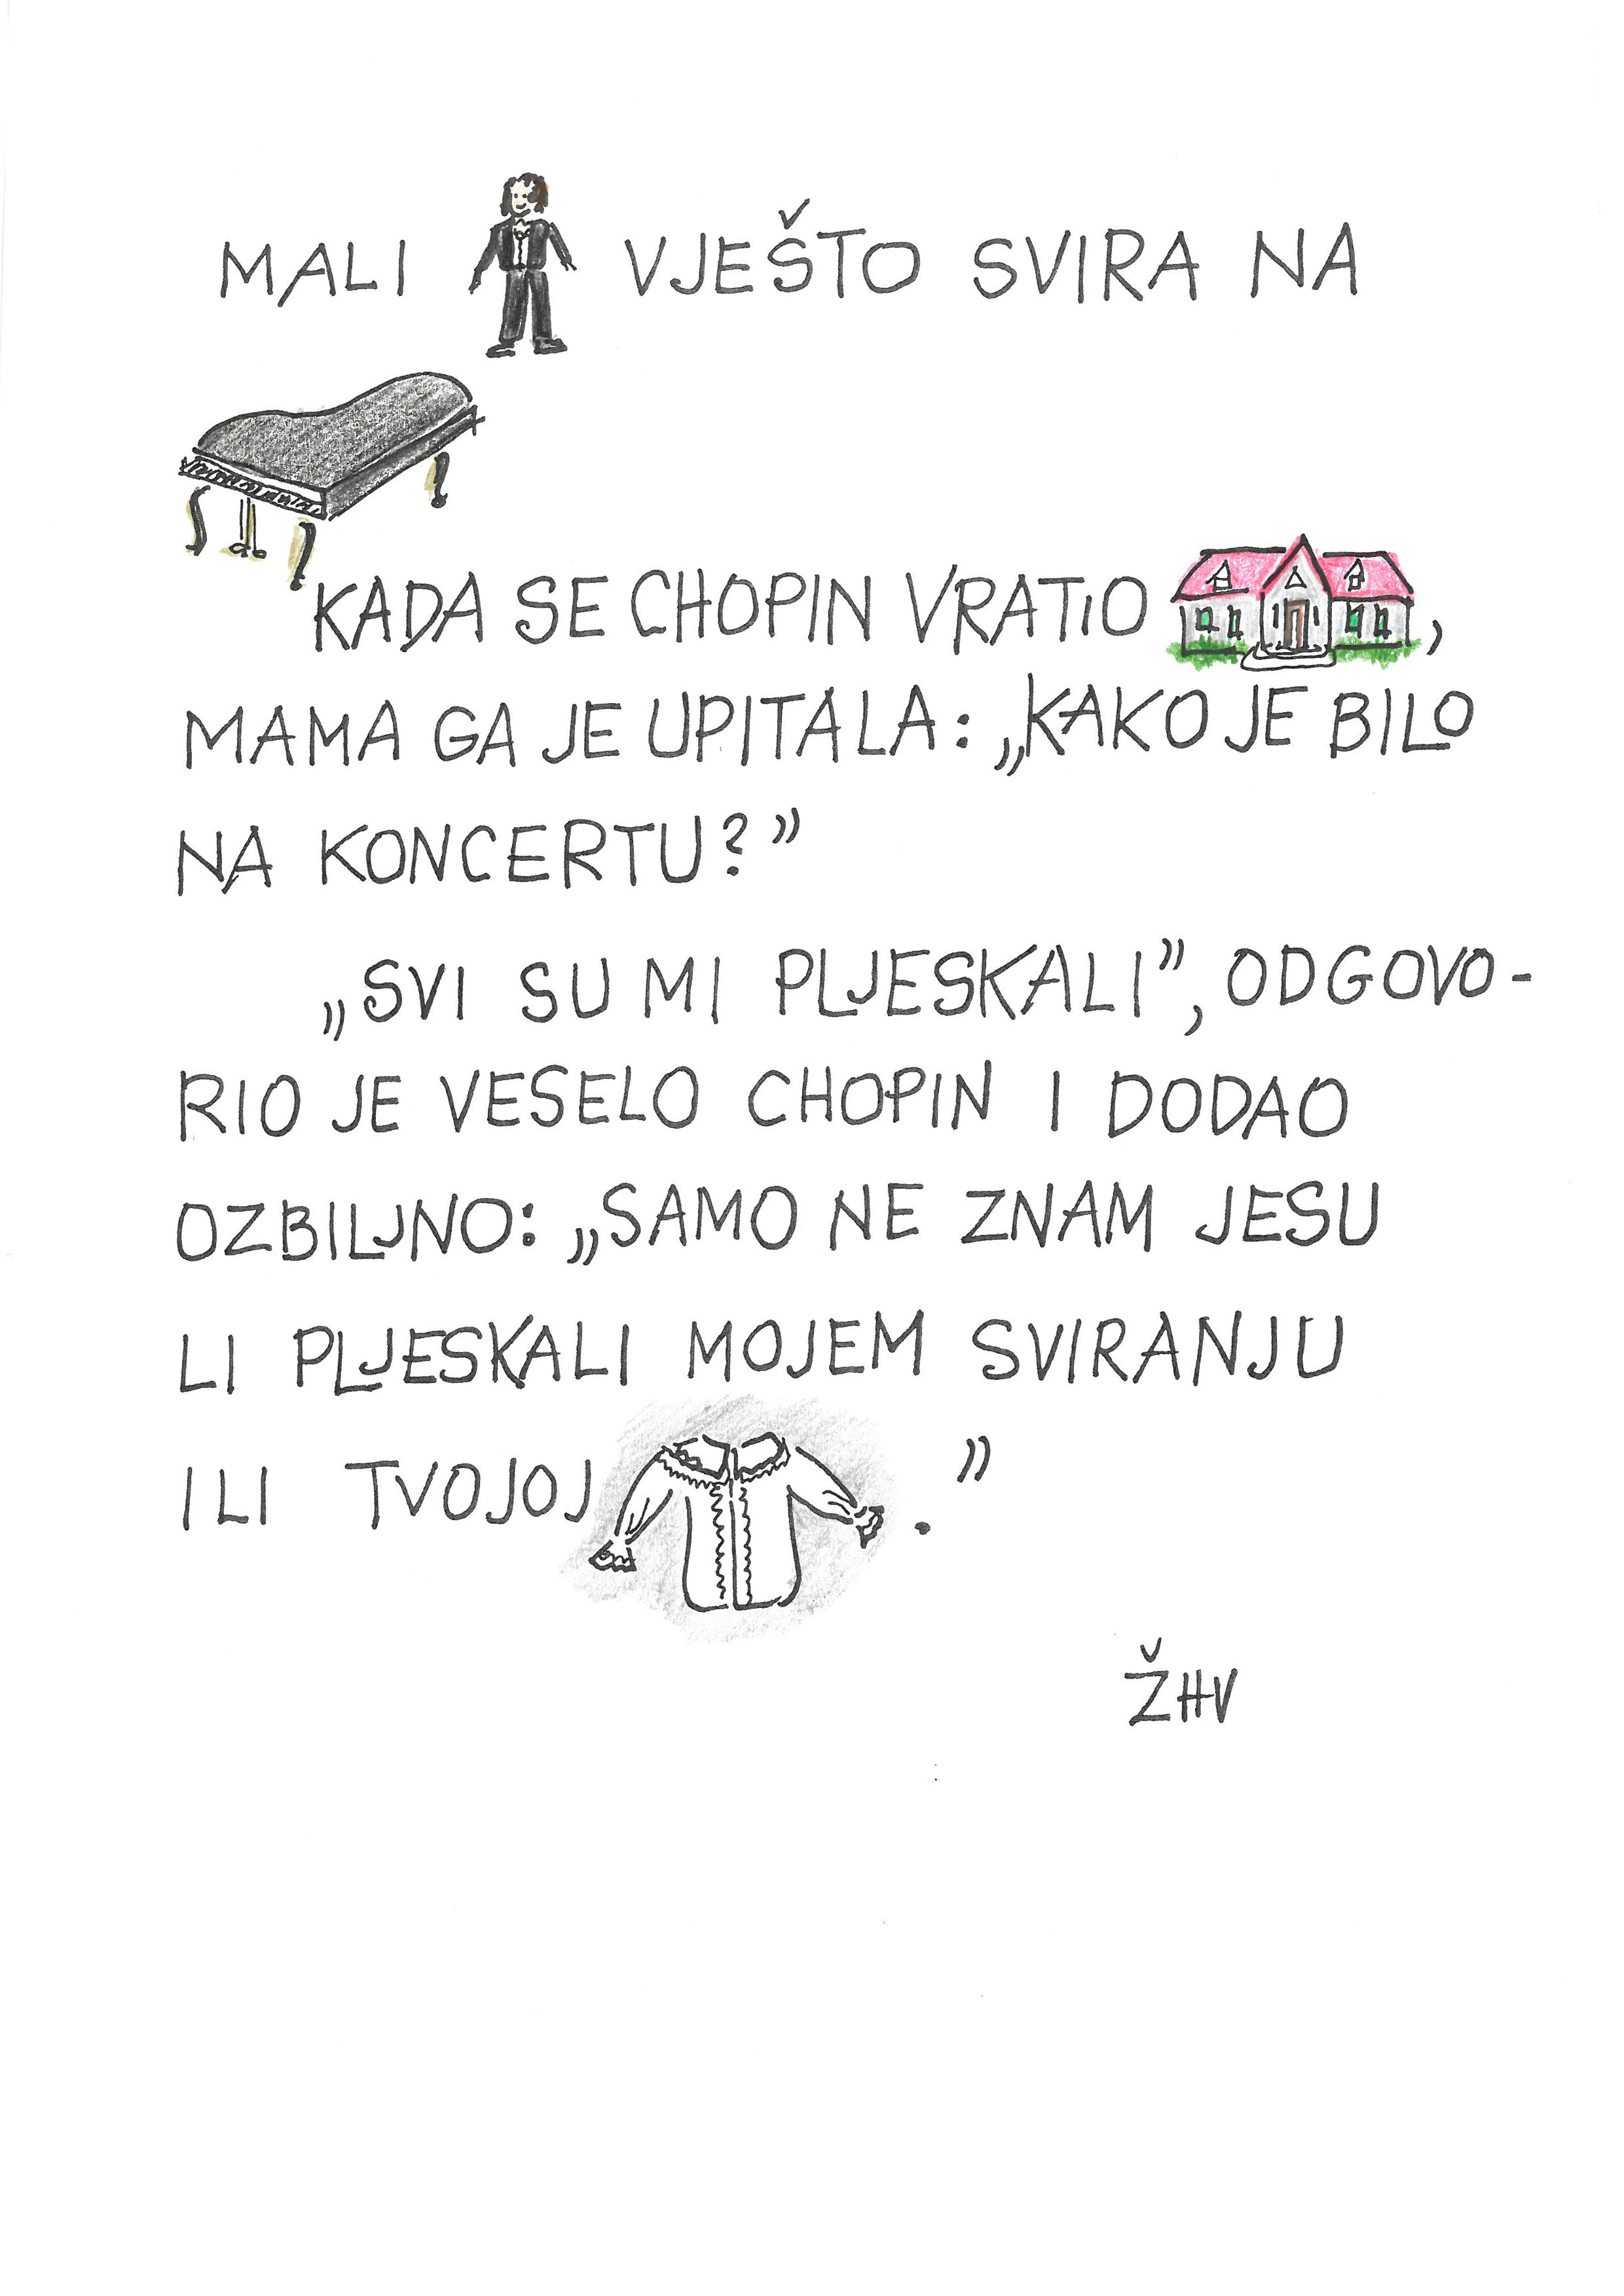 MALI VJEŠTO SVIRA NA
KADA SE CHOPIN VRATIO ,
MAMA GA JE UPITALA: „KAKO JE BILO
NA KONCERTU?”
„SVI SU MI PLJESKALI”, ODGOVO-
RIO JE VESELO CHOPIN I DODAO
OZBILJNO: „SAMO NE ZNAM JESU
LI PLJESKALI MOJEM SVIRANJU
ILI TVOJOJ .”
ŽHV